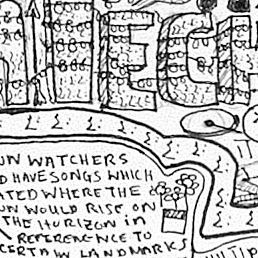 UN WATCHERS
D HAVE SONGS WHICH
ATED WHERE THE
UN WOULD RISE ON
THE HORIZON IN
REFERENCE TO
CERTAIN LANDMARKS